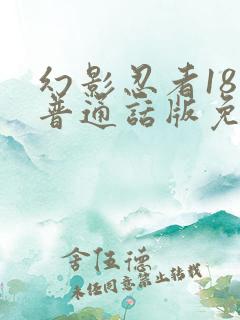 幻影忍者18
普通話版免
舍伍德
未经同意禁止转载